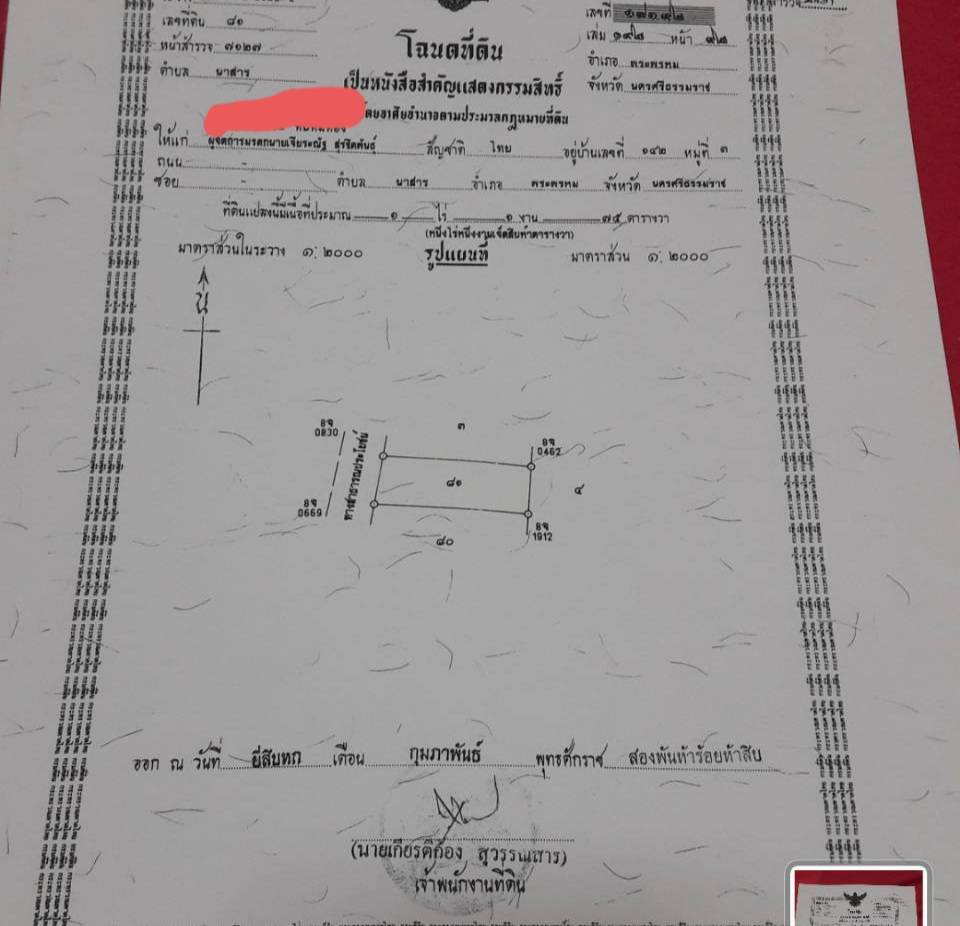 เลขที่ดิน ๘๑
เลขที่
หน้าสำรวจ ๗๑๒๗
เล่ม ๑๙๒ หน้า ๙๒
ตำบล นาสาร
โฉนดที่ดิน
อำเภอ พระพรหม
เป็นหนังสือสำคัญแสดงกรรมสิทธิ์
จังหวัด นครศรีธรรมราช
โดยอาศัยอำนาจตามประมวลกฎหมายที่ดิน
ให้แก่ ผู้จัดการมรดกนายเจียระณัฐ สัญชาติ ไทย อยู่บ้านเลขที่ ๑๔๒ หมู่ที่ ๓
ถนน -
ซอย - ตำบล นาสาร อำเภอ พระพรหม จังหวัด นครศรีธรรมราช
ที่ดินแปลงนี้มีเนื้อที่ประมาณ ๑ ไร่ ๑ งาน ๗๕ ตารางวา
(หนึ่งไร่หนึ่งงานเจ็ดสิบห้าตารางวา)
มาตราส่วนในระวาง ๑: ๒๐๐๐ รูปแผนที่ มาตราส่วน ๑: ๒๐๐๐
น
๓
8จ
0830
8จ
0462
ทางสาธารณประโยชน์
๘๑
๔
8จ
0669
8จ
1912
๘๐
ออก ณ วันที่ ยี่สิบหก เดือน กุมภาพันธ์ พุทธศักราช สองพันห้าร้อยห้าสิบ
(นายเกียรติก้อง สุวรรณสาร)
เจ้าพนักงานที่ดิน